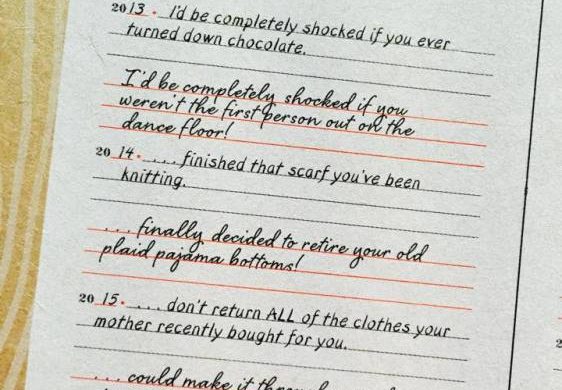 2013. I'd be completely shocked if you ever
turned down chocolate.
I'd be completely shocked if you
weren't the first person out on the
dance floor!
2014. . . . finished that scarf you've been
knitting.
. . . finally decided to retire your old
plaid pajama bottoms!
2015. . . . don't return ALL of the clothes your
mother recently bought for you.
. . . could make it
2